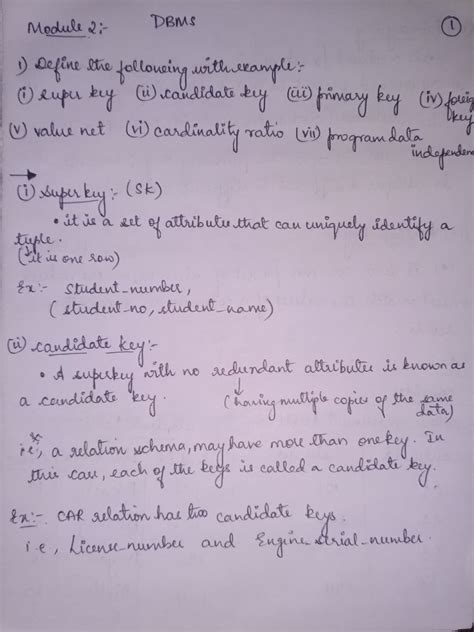 Module 2:-
DBMS
1
1) Define the following with example:-
(i) super key (ii) candidate key (iii) primary key (iv) foreign key
(v) value net (vi) cardinality ratio (vii) program data independence
(i) super key :- (SK)
• it is a set of attributes that can uniquely identify a
tuple.
(it is one row)
Ex:- Student_number,
(student_no, student_name)
(ii) candidate key:-
• A superkey with no redundant attributes is known as
a candidate key.
(having multiple copies of the same
data)
i.e., a relation schema, may have more than one key. In
this case, each of the keys is called a candidate key.
Ex:- CAR relation has two candidate keys.
i.e, License_number and Engine_serial_number.